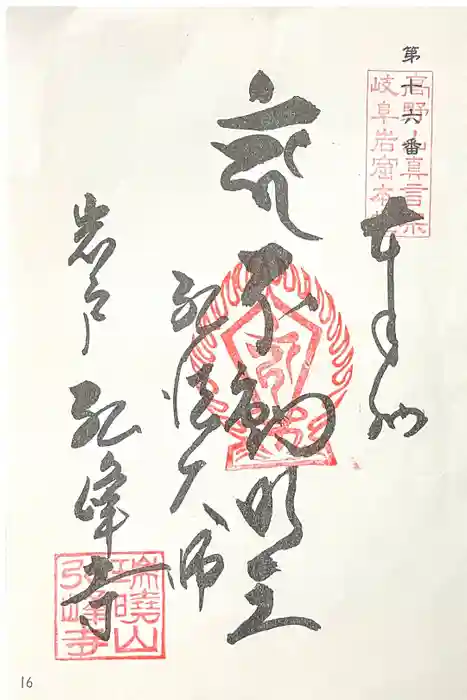 第十六番
高野山真言宗
岐阜岩窟
奉拝
不動明王
弘法大師
岩戸 弘峰寺
瑞暁山
弘峰寺
16